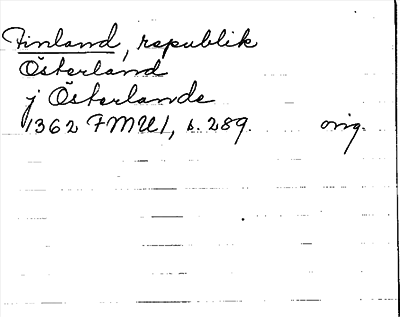 Finland, republik
Österland
j Österlande
1362 FMU 1, s. 289. orig.